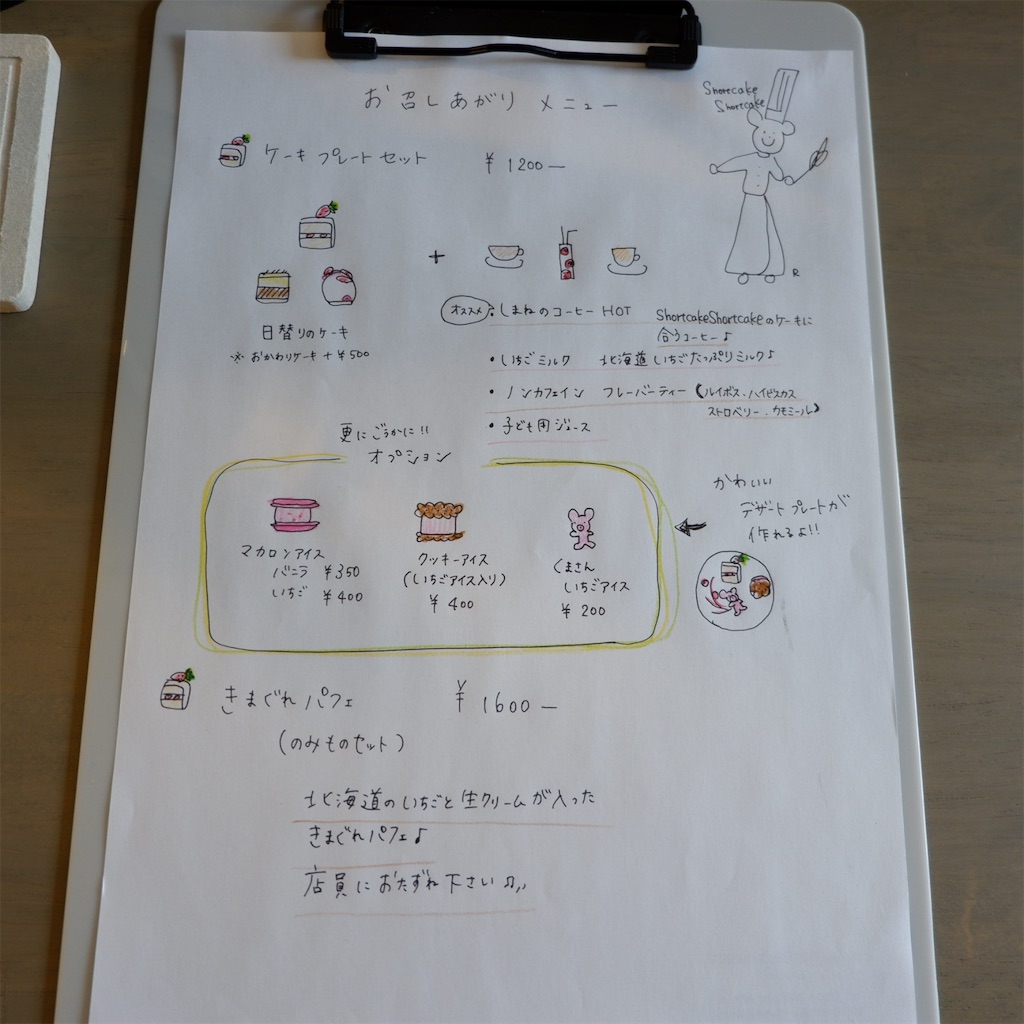 お召しあがり メニュー
Shortcake
Shortcake
ケーキプレートセット ￥1200ー
+
日替りのケーキ
※おかわりケーキ+￥500
オススメ
・しまねのコーヒー HOT ShortcakeShortcakeのケーキに
合うコーヒー♪
・いちごミルク 北海道いちごたっぷりミルク♪
・ノンカフェイン フレーバーティー(ルイボス・ハイビスカス
ストロベリー・カモミール)
・子ども用ジュース
更にごうかに!!
オプション
マカロンアイス
バニラ ￥350
いちご ￥400
クッキーアイス
(いちごアイス入り)
￥400
くまさん
いちごアイス
￥200
かわいい
デザートプレートが
作れるよ!!
きまぐれパフェ ￥1600ー
(のみものセット)
北海道のいちごと生クリームが入った
きまぐれパフェ♪
店員におたずね下さい♫